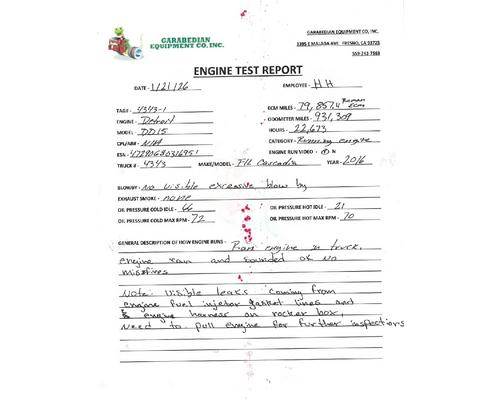 GARABEDIAN
EQUIPMENT CO, INC.
GARABEDIAN EQUIPMENT CO, INC.
3395 E MALAGA AVE. FRESNO, CA 93725
ENGINE TEST REPORT
DATE - 1/21/26 EMPLOYEE - HH
TAG# - 4343-1 ECM MILES - 79,857.4 Reman ECM
ENGINE - Detroit ODOMETER MILES - 931,309
MODEL - DD15 HOURS - 22,673
CPL/AR# - N/A CATEGORY - Running engine
ESN - 472906S0316951 ENGINE RUN VIDEO - Y N
TRUCK # - 4343 MAKE/MODEL - Cascadia YEAR - 2016
BLOWBY - No visible excessive blow by
EXHAUST SMOKE - none
OIL PRESSURE COLD IDLE - 66 OIL PRESSURE HOT IDLE - 21
OIL PRESSURE COLD MAX RPM - 72 OIL PRESSURE HOT MAX RPM - 70
GENERAL DESCRIPTION OF HOW ENGINE RUNS - Ran engine in truck,
engine ran and sounded ok no
misfires
Note: visible leaks coming from
engine fuel injetor gasket lines and
engine harness on rocker box,
need to pull engine for further inspections